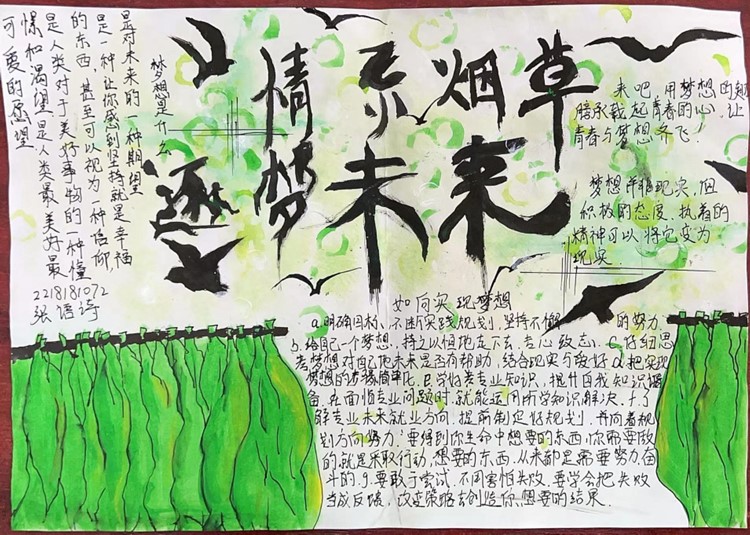 情系烟草
逐梦未来
梦想是什么
是对未来的一种期望
是一种让你感到坚持就是幸福
的东西,甚至可以视为一种信仰
是人类对于美好事物的一种憧
憬和渴望,是人类最美好最
可爱的愿望
2218181072
张语诗
来吧,用梦想的翅
膀承载起青春的心,让
青春与梦想齐飞!
梦想并非现实,但
积极的态度,执着的
精神可以将它变为
现实
如何实现梦想
a.明确目标,不断实践规划,坚持不懈的努力.
b.给自己一个梦想,持之以恒地走下去,专心致志.c.仔细思
考梦想对自己地未来是否有帮助,结合现实与爱好d.把实现
梦想的步骤简单化.e.学好专业知识,提升自我知识储
备,在面临专业问题时,就能运用所学知识解决.f.了
解专业未来就业方向,提前制定好规划,并向着规
划方向努力.要得到你生命中想要的东西,你需要做
的就是采取行动,想要的东西,从来都是需要努力奋
斗的.g.要敢于尝试,不用害怕失败,要学会把失败
当成反馈,改变策略去创造你想要的结果.